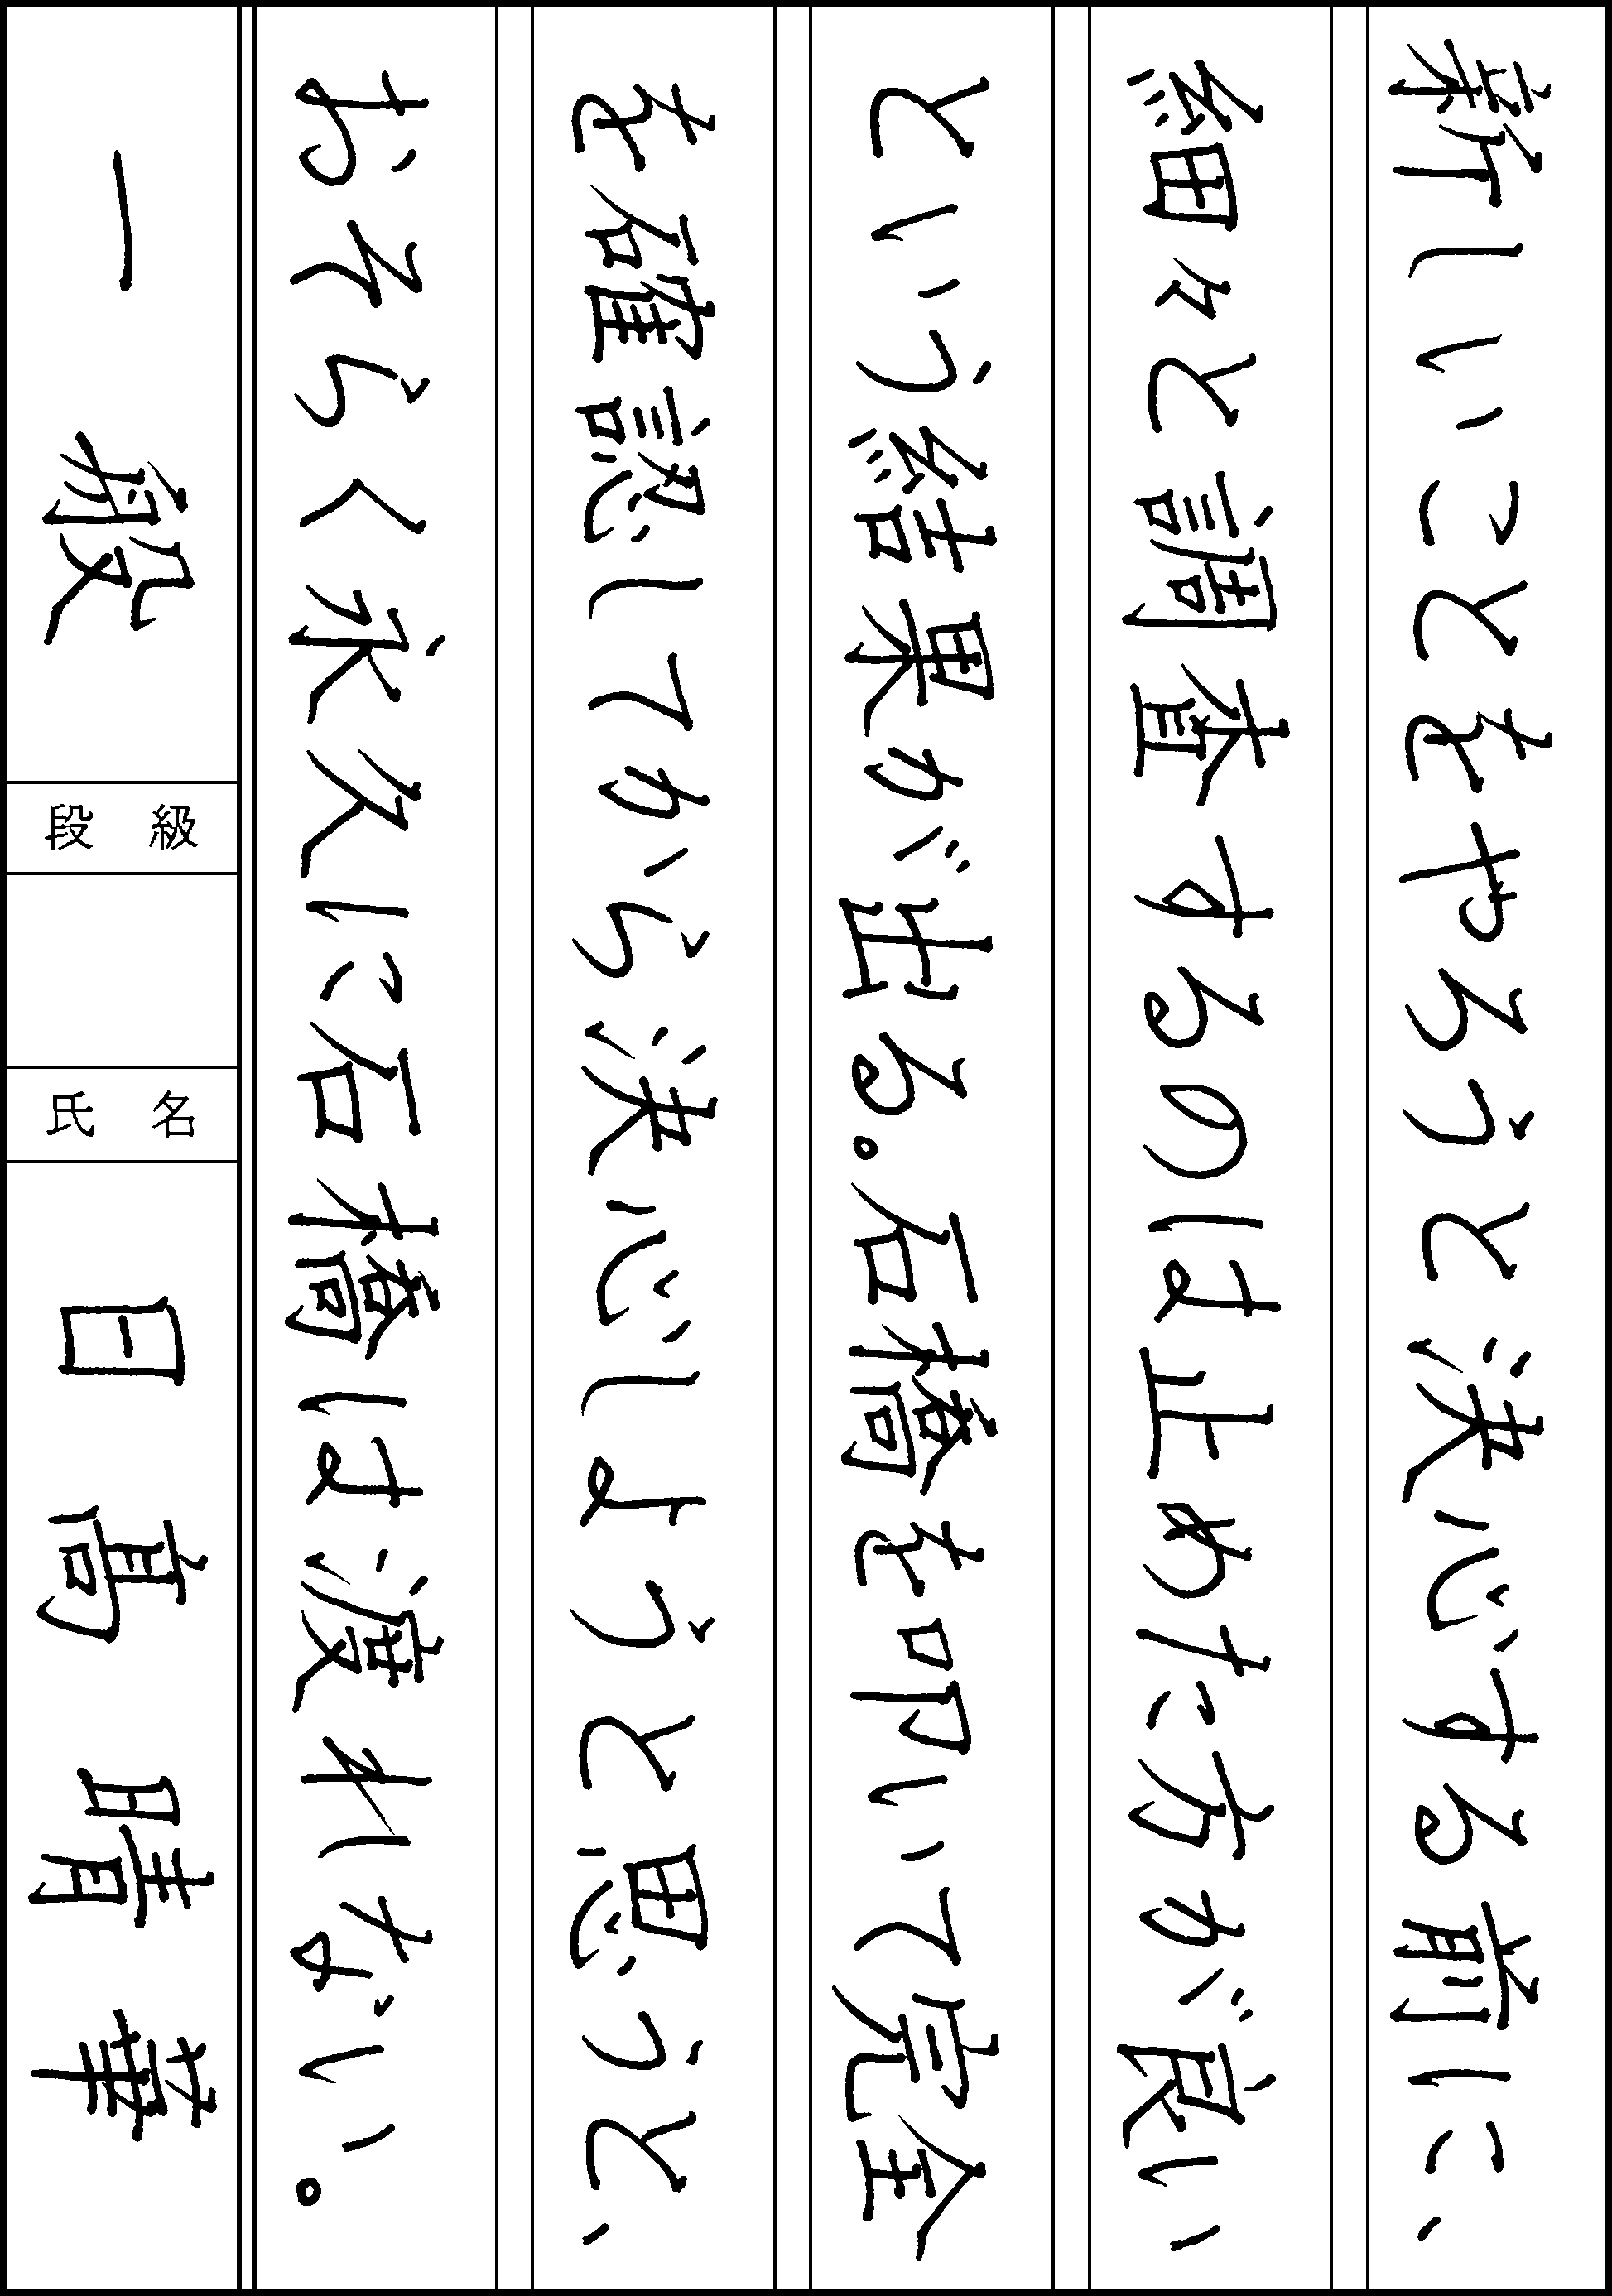 新しいことをやろうと決心する前に、
細々と調査するのは止めた方が良い
という結果が出る。石橋を叩いて完全
を確認してから決心しようと思うと、
おそらく永久に石橋は渡れない。
一般 段級 氏名 日高晴華